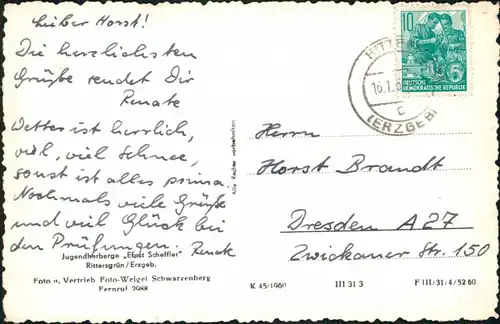 Lieber Horst!
Die herzlichsten
Grüße sendet Dir
Renate
Wetter ist herrlich,
viel, viel Schnee,
sonst ist alles prima.
Nochmals viele Grüße
und viel Glück bei
den Prüfungen. Renate
Jugendherberge „Ernst Scheffler"
Rittersgrün/Erzgeb.
Foto u. Vertrieb Foto-Weigel Schwarzenberg
Fernruf 2988
Alle Rechte vorbehalten
K 45/1960 III 31 3 F III/31/4/52 60
10
DEUTSCHE
DEMOKRATISCHE REPUBLIK
16.1.
c
(ERZGEB)
Herrn
Horst Brandt
Dresden A 27
Zwickauer Str. 150